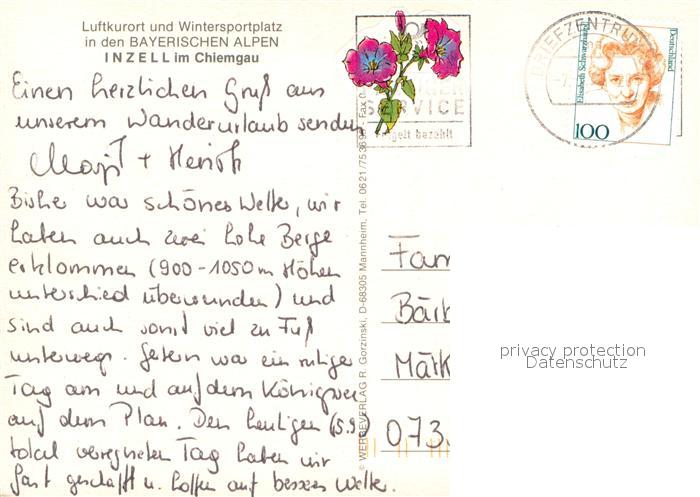 Luftkurort und Wintersportplatz
in den BAYERISCHEN ALPEN
INZELL im Chiemgau
Einen herzlichen Gruß aus
unserem Wanderurlaub senden
Margit +
Bisher war schönes Wetter, wir
haben auch zwei hohe Berge
erklommen (900-1050m Höhen
unterschied überwunden) und
sind auch sonst viel zu Fuß
unterwegs. Gestern war ein ruhiger
Tag am und auf dem Königssee
auf dem Plan. Den heutigen (5.9.)
total verregneten Tag haben wir
fast geschafft u. hoffen auf besseres Wetter.
SERVICE
BRIEFZENTRUM
Elisabeth Schwarzkopf
Deutschland
100
© WERBEVERLAG R. Gorzinski, D-68305 Mannheim, Tel. 0621/
Fam
Bärb
Märk
073
privacy protection
Datenschutz